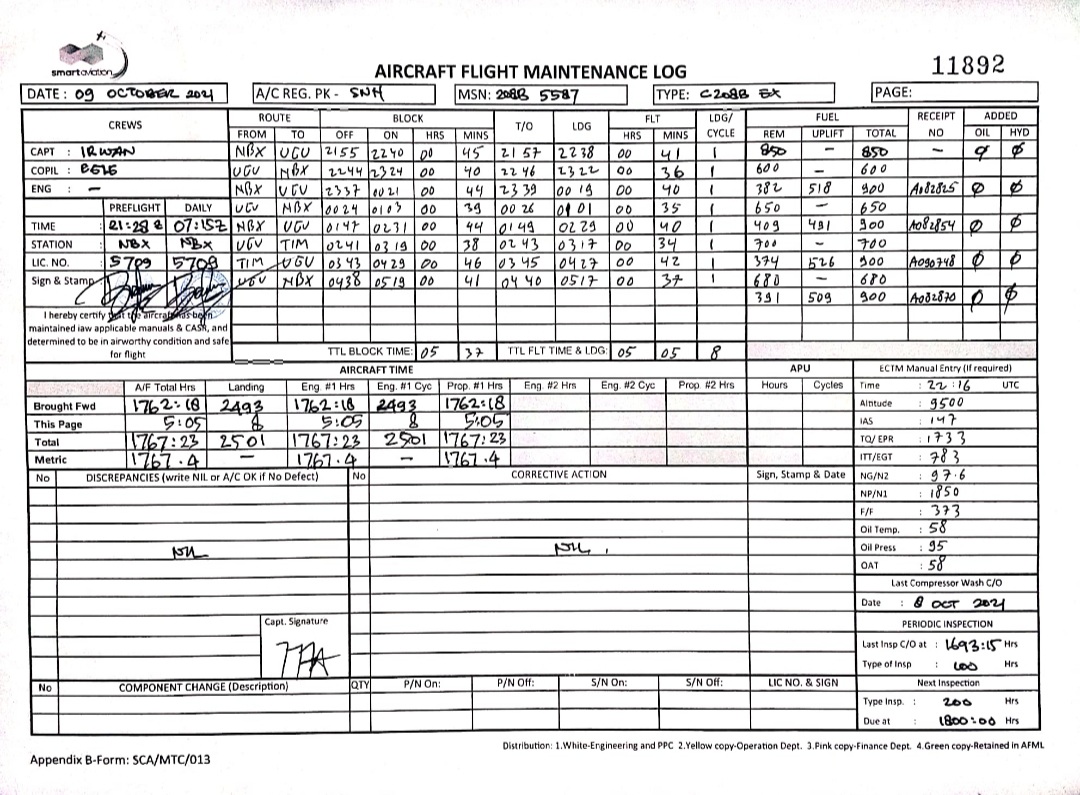 smartaviation
11892
AIRCRAFT FLIGHT MAINTENANCE LOG
DATE : 09 OCTOBER 2021 A/C REG. PK - SNH MSN: 208B 5587 TYPE: C208B EX PAGE:
CREWS ROUTE BLOCK T/O LDG FLT LDG/ CYCLE FUEL RECEIPT NO ADDED
FROM TO OFF ON HRS MINS HRS MINS REM UPLIFT TOTAL OIL HYD
CAPT : IRWAN NBX UGU 2155 2240 00 45 2157 2238 00 41 1 850 - 850 - 0 0
COPIL : UGU NBX 2244 2324 00 40 2246 2322 00 36 1 600 - 600
ENG : - NBX UGU 2337 0021 00 44 2339 0019 00 40 1 382 518 900 A082825 0 0
PREFLIGHT DAILY UGU NBX 0024 0103 00 39 0026 0101 00 35 1 650 - 650
TIME : 21:28 Z 07:15Z NBX UGU 0147 0231 00 44 0149 0229 00 40 1 409 491 900 A082854 0 0
STATION : NBX NBX UGU TIM 0241 0319 00 38 0243 0317 00 34 1 700 - 700
LIC. NO. : 5709 5709 TIM UGU 0343 0429 00 46 0345 0427 00 42 1 374 526 900 A090748 0 0
Sign & Stamp UGU NBX 0438 0519 00 41 0440 0517 00 37 1 680 - 680
391 509 900 A082870 0 0
I hereby certify that the aircraft has been
maintained iaw applicable manuals & CASR, and
determined to be in airworthy condition and safe
for flight
TTL BLOCK TIME: 05 37 TTL FLT TIME & LDG: 05 05 8
AIRCRAFT TIME APU ECTM Manual Entry (If required)
A/F Total Hrs Landing Eng. #1 Hrs Eng. #1 Cyc Prop. #1 Hrs Eng. #2 Hrs Eng. #2 Cyc Prop. #2 Hrs Hours Cycles Time : 22:16 UTC
Brought Fwd 1762:18 2493 1762:18 2493 1762:18 Altitude : 9500
This Page 5:05 8 5:05 8 5:05 IAS : 147
Total 1767:23 2501 1767:23 2501 1767:23 TQ/ EPR : 1733
Metric 1767.4 - 1767.4 - 1767.4 ITT/EGT : 783
No DISCREPANCIES (write NIL or A/C OK if No Defect) No CORRECTIVE ACTION Sign, Stamp & Date NG/N2 : 97.6
NP/N1 : 1850
F/F : 373
Oil Temp. : 58
NIL NIL . Oil Press : 95
OAT : 58
Last Compressor Wash C/O
Date : 8 OCT 2021
Capt. Signature PERIODIC INSPECTION
Last Insp C/O at : 1693:15 Hrs
Type of Insp : 100 Hrs
No COMPONENT CHANGE (Description) QTY P/N On: P/N Off: S/N On: S/N Off: LIC NO. & SIGN Next Inspection
Type Insp. : 200 Hrs
Due at : 1800:00 Hrs
Distribution: 1.White-Engineering and PPC 2.Yellow copy-Operation Dept. 3.Pink copy-Finance Dept. 4.Green copy-Retained in AFML
Appendix B-Form: SCA/MTC/013